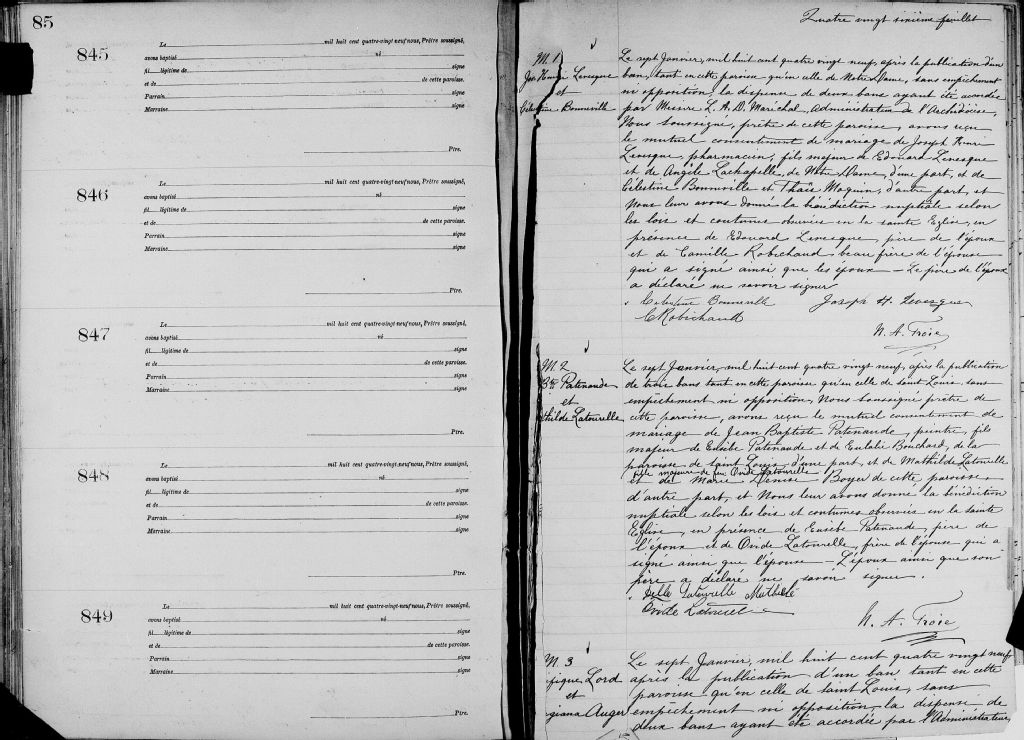 85
845
Le mil huit cent quatre-vingt-neuf nous, Prêtre soussigné,
avons baptisé né
fil légitime de signe
et de de cette paroisse.
Parrain signe
Marraine signe
Ptre.
846
Le mil huit cent quatre-vingt-neuf nous, Prêtre soussigné,
avons baptisé né
fil légitime de signe
et de de cette paroisse.
Parrain signe
Marraine signe
Ptre.
847
Le mil huit cent quatre-vingt-neuf nous, Prêtre soussigné,
avons baptisé né
fil légitime de signe
et de de cette paroisse.
Parrain signe
Marraine signe
Ptre.
848
Le mil huit cent quatre-vingt-neuf nous, Prêtre soussigné,
avons baptisé né
fil légitime de signe
et de de cette paroisse.
Parrain signe
Marraine signe
Ptre.
849
Le mil huit cent quatre-vingt-neuf nous, Prêtre soussigné,
avons baptisé né
fil légitime de signe
et de de cette paroisse.
Parrain signe
Marraine signe
Ptre.
Quatre vingt sixième feuillet
M. 1
Jos. Henri Levesque
et
Célestine Bonneville
Le sept Janvier, mil huit cent quatre vingt neuf, après la publication d'un
ban, tant en cette paroisse qu'en celle de Notre Dame, sans empêchement
ni opposition, la dispense de deux bans ayant été accordée
par Messire L. A. D. Maréchal, Administrateur de l'Archidiocèse,
Nous soussigné, prêtre de cette paroisse, avons reçu
le mutuel consentement de mariage de Joseph Henri
Levesque, pharmacien, fils majeur de Edouard Levesque
et de Angèle Lachapelle, de Notre Dame, d'une part, et de
Célestine Bonneville et Thaïs Moquin, d'autre part, et
Nous leur avons donné la bénédiction nuptiale selon
les lois et coutumes observées en la sainte Eglise, en
présence de Edouard Levesque, père de l'époux
et de Camille Robichaud beau frère de l'épouse
qui a signé ainsi que les époux — Le père de l'époux
a déclaré ne savoir signer
Celestine Bonneville Joseph H. Levesque
C Robichaud
N. A. Troie
M. 2
Bte Patenaude
et
thilde Latourelle
Le sept Janvier, mil huit cent quatre vingt neuf, après la publication
de trois bans tant en cette paroisse qu'en celle de Saint Louis, sans
empêchement ni opposition, Nous soussigné prêtre de
cette paroisse, avons reçu le mutuel consentement de
mariage de Jean Baptiste Patenaude, peintre, fils
majeur de Eusèbe Patenaude et de Eulalie Bouchard, de la
paroisse de Saint Louis, d'une part, et de Mathilde Latourelle
fille majeure de feu Ovide Latourelle
et de Marie Denise Boyer de cette paroisse,
d'autre part, et Nous leur avons donné la bénédiction
nuptiale selon les lois et coutumes observées en la sainte
Eglise, en présence de Eusèbe Patenaude, père de
l'époux et de Ovide Latourelle, frère de l'épouse qui a
signé ainsi que l'épouse — L'époux ainsi que son
père a déclaré ne savoir signer.
Delle Latourelle Mathilde
Ovide Latourel
N. A. Troie
M. 3
Lord
et
giana Auger
Le sept Janvier, mil huit cent quatre vingt neuf
après la publication d'un ban tant en cette
paroisse qu'en celle de saint Louis, sans
empêchement ni opposition, la dispense de
deux bans ayant été accordée par l'Administrateur,